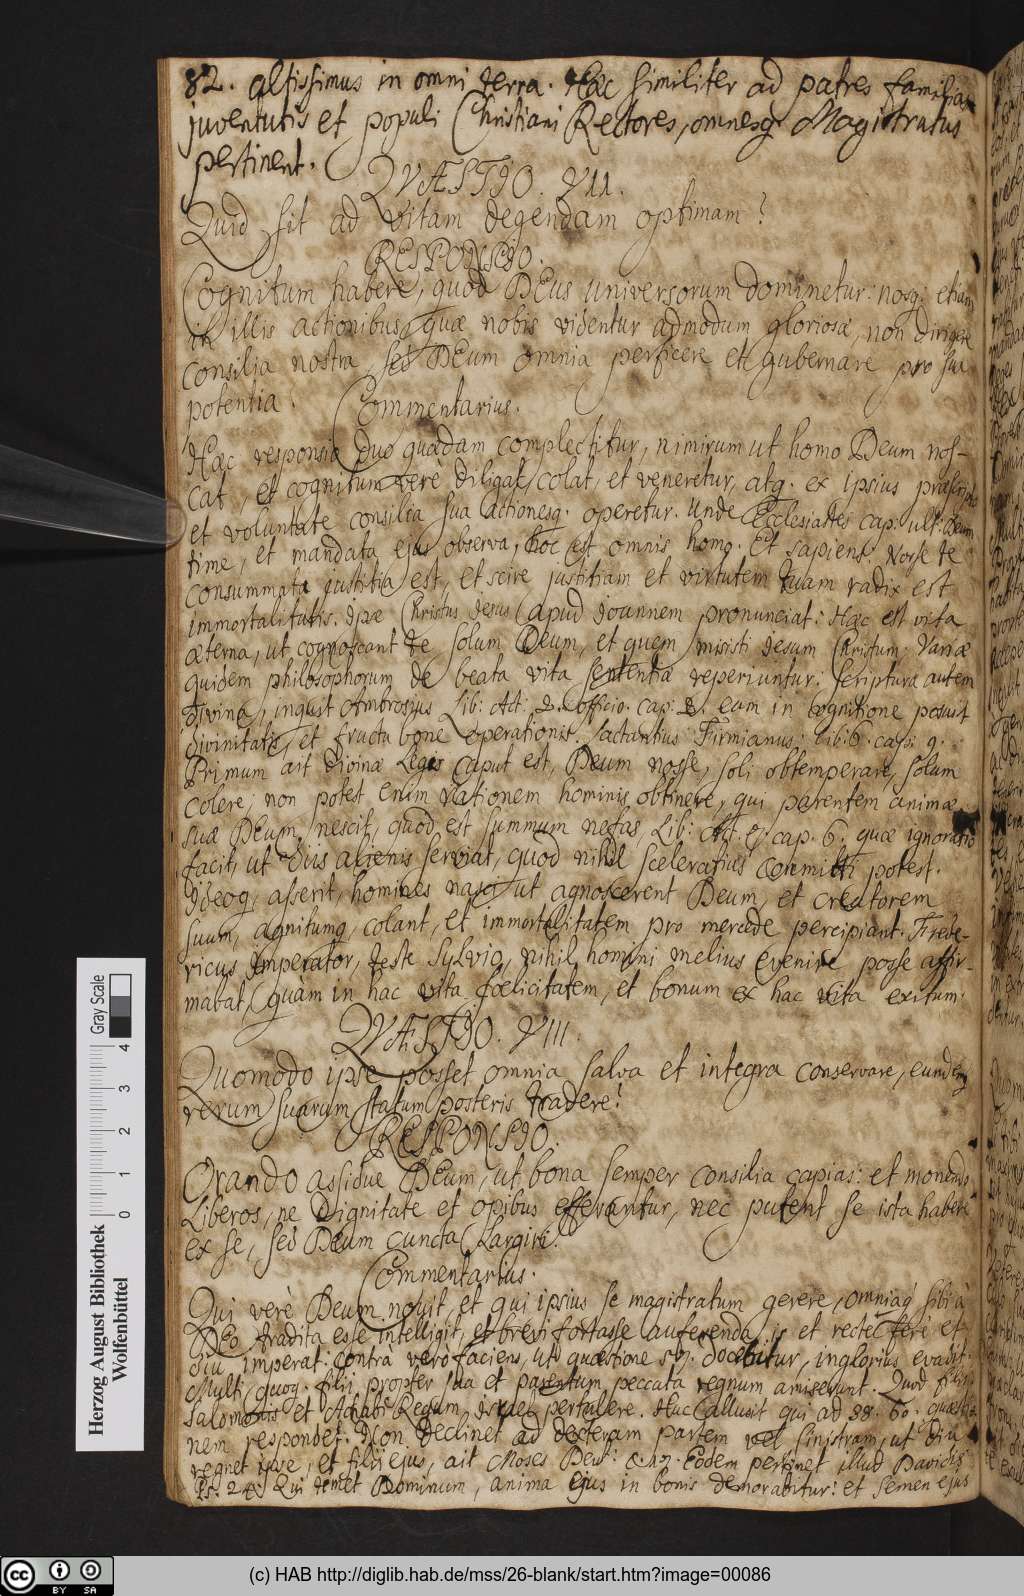 82. altissimus in omni terra. Hæc similiter ad patres familias
juventutis et populi Christiani Rectores, omnesq. Magistratus
pertinent.
QVÆSTIO. VII.
Quid sit ad vitam degendam optimam?
RESPONSIO.
Cognitum habere, quod DEus universorum dominetur: nosq. etiam
in illis actionibus, quæ nobis videntur admodum gloriosæ, non dirigere
consilia nostra, sed DEum omnia perficere et gubernare pro sua
potentia. Commentarius.
Hæc responsio duo quædam complectitur, nimirum ut homo Deum nos-
cat, et cognitum verè diligat, colat, et veneretur, atq. ex ipsius præscripto
et voluntate consilia sua actionesq. operetur. Unde Ecclesiastes cap. ult: Deum
time, et mandata ejus observa, hoc est omnis homo. Et sapiens. Nosse te
consummata justitia est, et scire justitiam et virtutem tuam radix est
immortalitatis. Ipse Christus Jesus apud Joannem pronunciat: Hæc est vita
æterna, ut cognoscant te solum Deum, et quem misisti Jesum Christum. Variæ
quidem philosophorum de beata vita sententiæ reperiuntur: scriptura autem
divina, inquit Ambrosius Lib: officio. cap: 2. eam in cognitione posuit
divinitatis, et fructu bonæ operationis. Lactantius Firmianus: lib: 6. cap: 9.
Primum ait divinæ Legis caput est, Deum nosse, soli obtemperare, solum
colere; non potest enim rationem hominis obtinere, qui parentem animæ
suæ DEum nescit, quod est summum nefas, Lib: cap. 6. quæ ignoratio
facit, ut Diis alienis serviat, quod nihil sceleratius committi potest.
Ideoq. asserit, homines nasci, ut agnoscerent Deum, et creatorem
suum, agnitumq. colant, et immortalitatem pro mercede percipiant. Frede-
ricus Imperator, teste Sylvio, nihil homini melius evenire posse affir-
mabat, quàm in hac vita fœlicitatem, et bonum ex hac vita exitum.
QVÆSTIO. VIII.
Quomodo ipse posset omnia salva et integra conservare, eundemq
rerum suarum statum posteris tradere?
RESPONSIO.
Orando assidue DEum, ut bona semper consilia capias: et monendo
Liberos, ne dignitate et opibus efferantur, nec putent se ista habere
ex se, sed Deum cuncta Largiri.
Commentarius.
Qui verè Deum novit, et qui ipsius se magistratum gerere, omniaq. sibi à
DEo tradita esse intelligit, et brevi fortasse auferenda, is et rectè feré et
diu imperat: contrà verò faciens, uti quæstione docebitur, inglorius evadit.
Multi, quoq. filii propter sua et parentum peccata regnum amiserunt. Quod filii
Salomonis et Achabi Regum Israel pertulere. Huc allusit qui ad 38. 60. quæstio
nem respondet. Non declinet ad dexteram partem vel sinistram, ut diu
regnet ipse, et filii ejus, ait Moses Deut: c. 17. Eodem pertinet illud Davidis
Ps: 24. Qui timet Dominum, anima ejus in bonis demorabitur: et semen ejus
Gray Scale
0 1 2 3 4
Herzog August Bibliothek
Wolfenbüttel
cc BY SA
(c) HAB http://diglib.hab.de/mss/26-blank/start.htm?image=00086